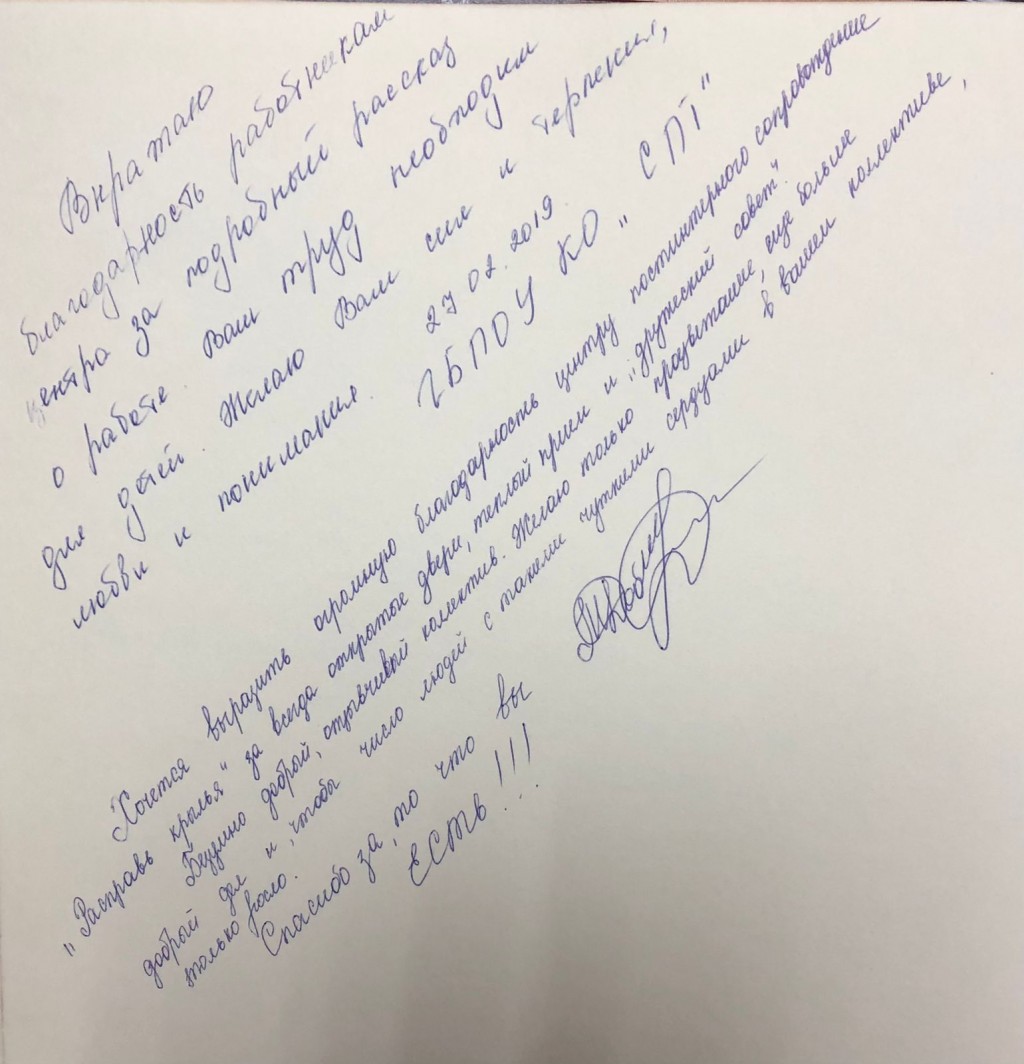 Выражаю
благодарность работникам
центра за подробный рассказ
о работе Ваш труд необходим
для детей. Желаю Вам сил и терпения,
любви и понимания. 27 02. 2019.
ГБПОУ КО "СПТ"
Хочется выразить огромную благодарность центру постинтерного сопровождение
"Расправь крылья" за всегда открытые двери, теплый прием и "дружеский совет".
Безумно добрый, отзывчивый коллектив. Желаю только процветание, еще больше
добрый дел и, чтобы число людей с такими чуткими сердцами в вашем коллективе,
только росло.
Спасибо за, то что вы
ЕСТЬ!!!